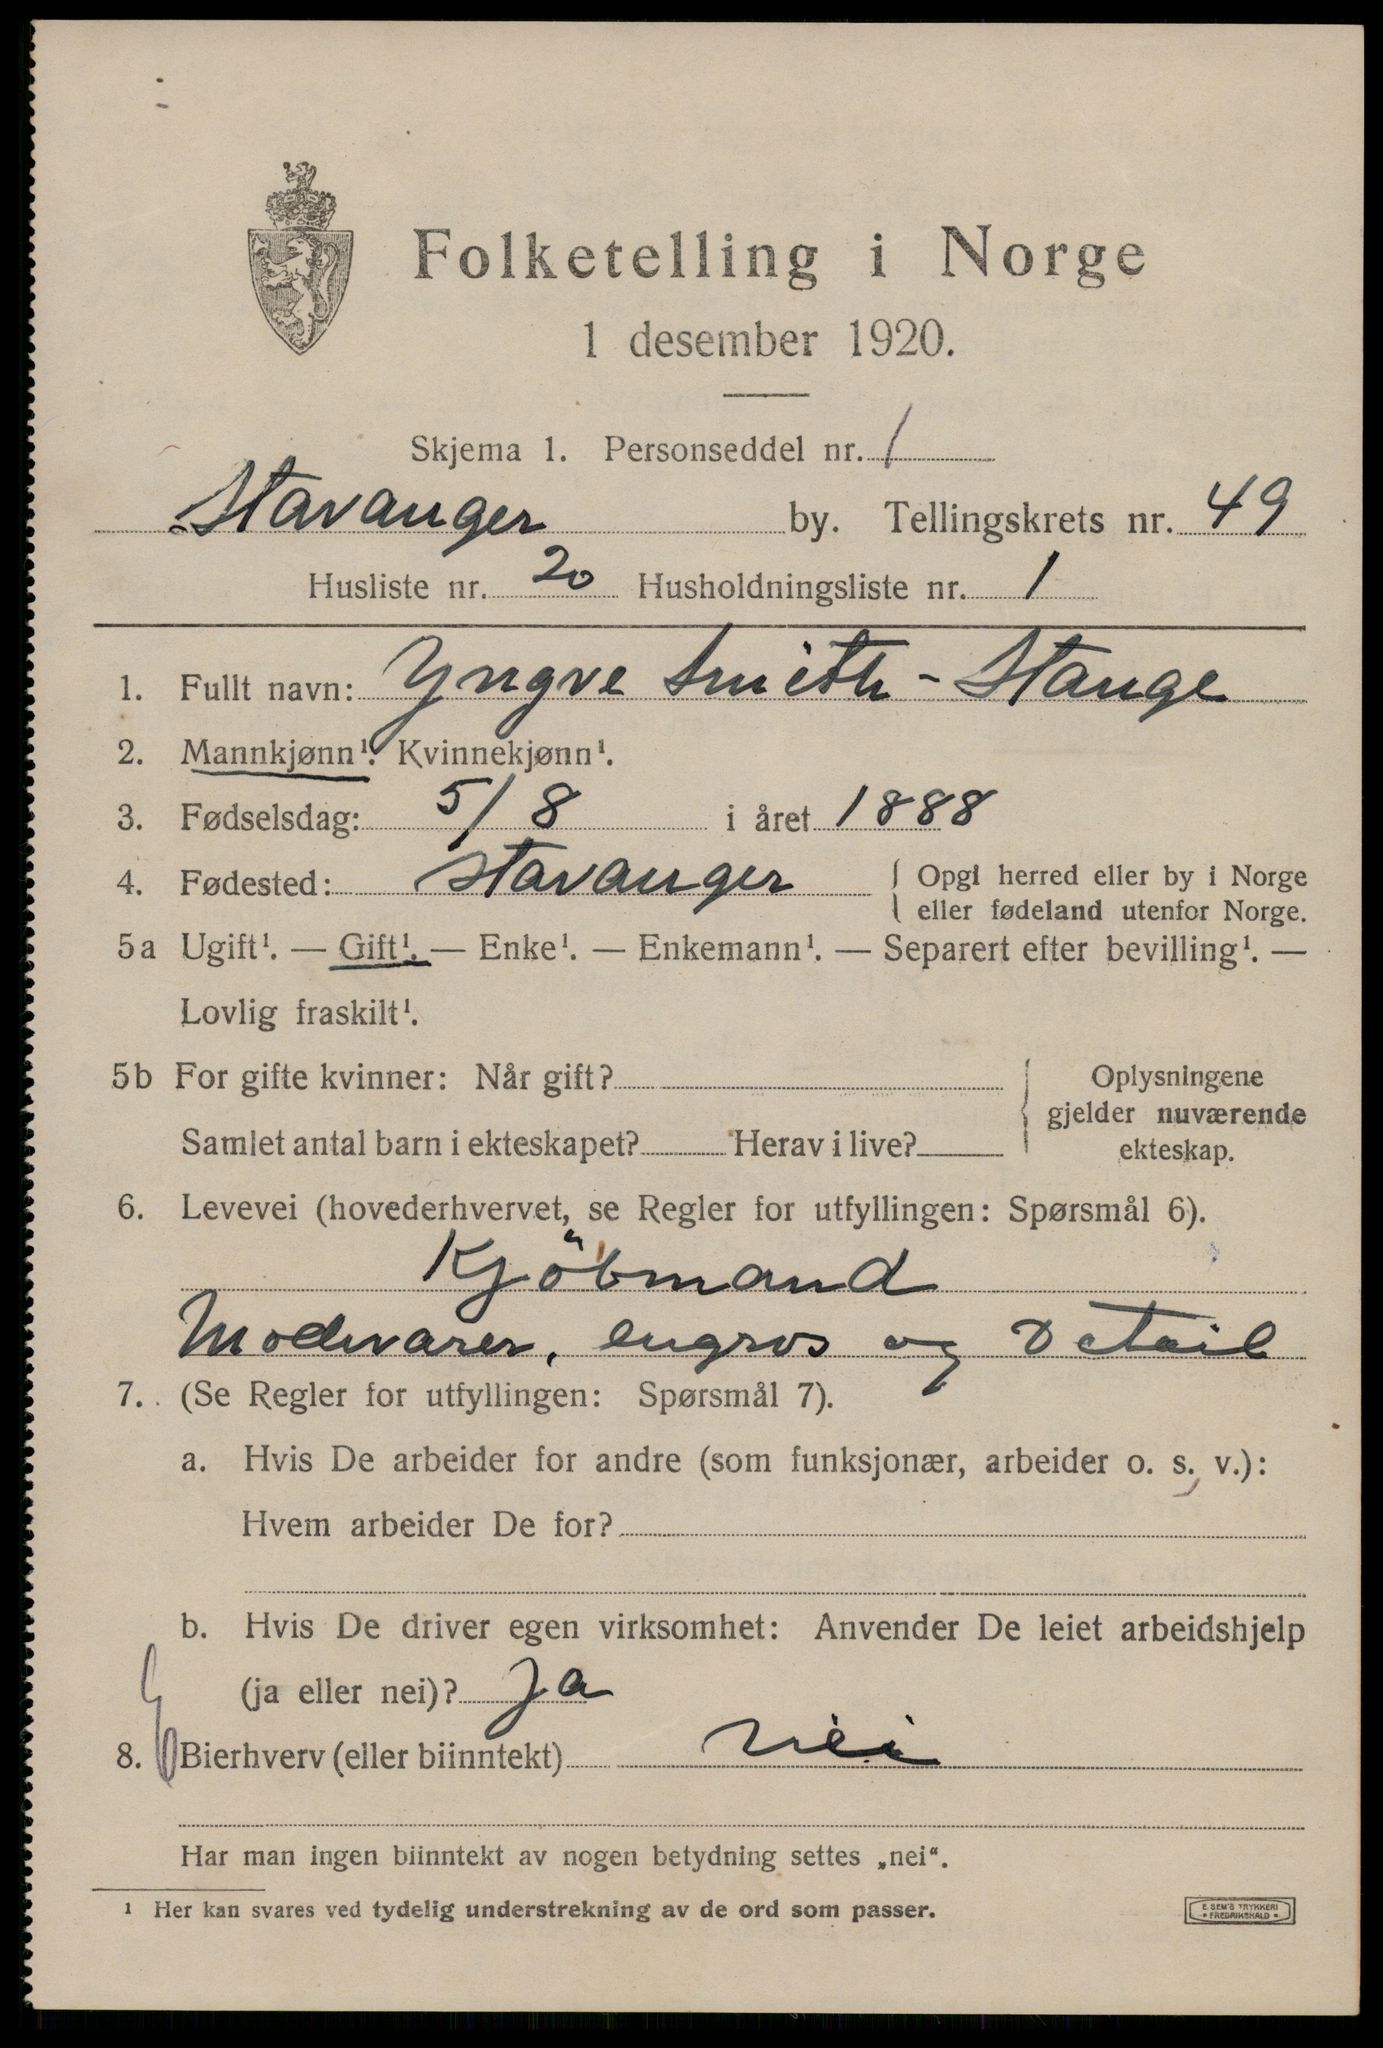 Folketelling i Norge
1 desember 1920.
Skjema 1. Personseddel nr. 1
Stavanger by. Tellingskrets nr. 49
Husliste nr. 20 Husholdningsliste nr. 1
1. Fullt navn: Yngve Smith-Stange
2. Mannkjønn¹. Kvinnekjønn¹.
3. Fødselsdag: 5/8 i året 1888
4. Fødested: Stavanger { Opgi herred eller by i Norge
eller fødeland utenfor Norge.
5a Ugift¹. — Gift¹. — Enke¹. — Enkemann¹. — Separert efter bevilling¹. —
Lovlig fraskilt¹.
5b For gifte kvinner: Når gift?
Samlet antal barn i ekteskapet? Herav i live?
Oplysningene
gjelder nuværende
ekteskap.
6. Levevei (hovederhvervet, se Regler for utfyllingen: Spørsmål 6).
Kjöbmand
Modevarer, engros og Detail
7. (Se Regler for utfyllingen: Spørsmål 7).
a. Hvis De arbeider for andre (som funksjonær, arbeider o. s. v.):
Hvem arbeider De for?
b. Hvis De driver egen virksomhet: Anvender De leiet arbeidshjelp
(ja eller nei)? Ja
8. Bierhverv (eller biinntekt) nei
Har man ingen biinntekt av nogen betydning settes „nei“.
¹ Her kan svares ved tydelig understrekning av de ord som passer.
E. SEM'S TRYKKERI
• FREDRIKSHALD •